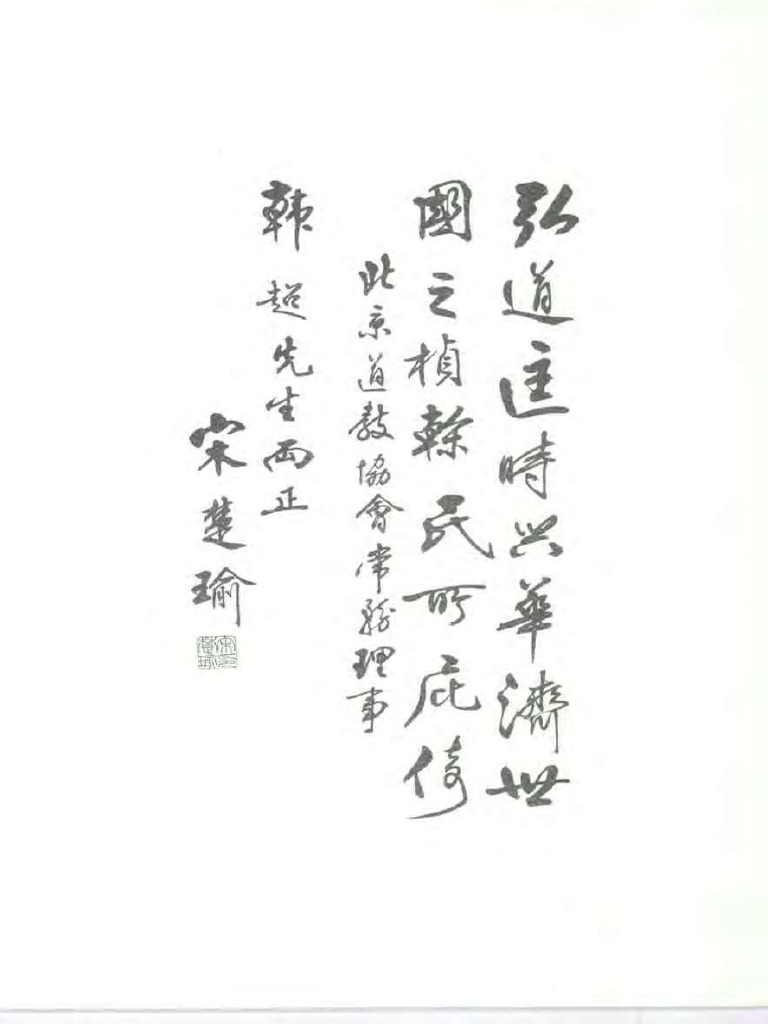 弘道匡時興華濟世
國之楨榦民所庇倚
北京道教協會常務理事
韩超先生両正
宋楚瑜